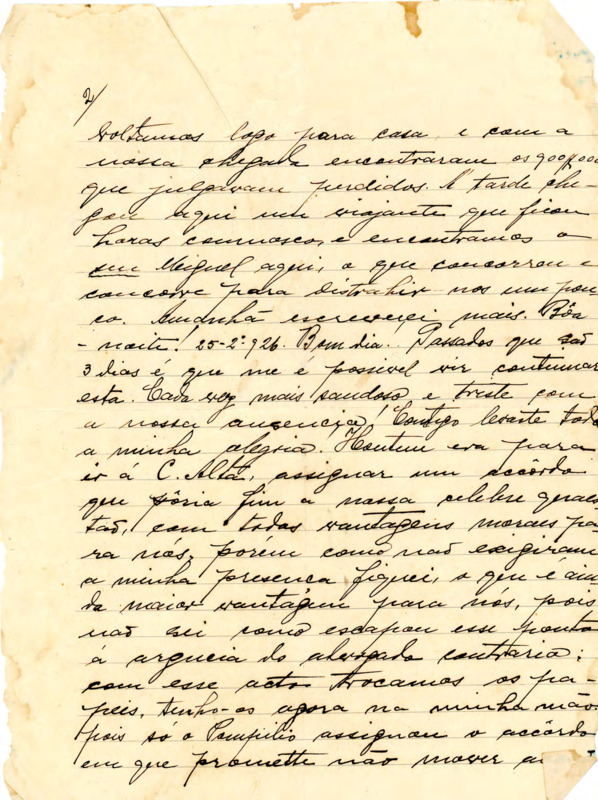 2/
Voltamos logo para casa e com a
nossa chegada encontraram os 900$000
que julgavam perdidos. A' tarde che-
gou aqui um viajante que ficou
horas comnosco, e encontramos o
seu Miguel aqui, o que concorreu e
concorre para distrahir nos um pou-
co. Amanhã escreverei mais. Bôa
-noite. 25-2º-926. Bom dia. Passados que são
3 dias é que me é possivel vir continuar
esta. Cada vez mais saudoso e triste com
a nossa ausencia! Comtigo levaste toda
a minha alegria. Hontem era para
ir á C. Alta, assignar um accôrdo
que pôria fim a nossa celebre
taõ, com todas vantagens moraes pa-
ra nós, porém como naõ exigiram
a minha presença fiquei, o que é ain-
da maior vantagem para nós, pois
naõ sei como escapou esse ponto
á argucia do advogado contrario:
com esse acto trocamos os pa-
peis, tenho-os agora na minha mão
pois só o Pompilio assignou o accôrdo
em que promette não mover a